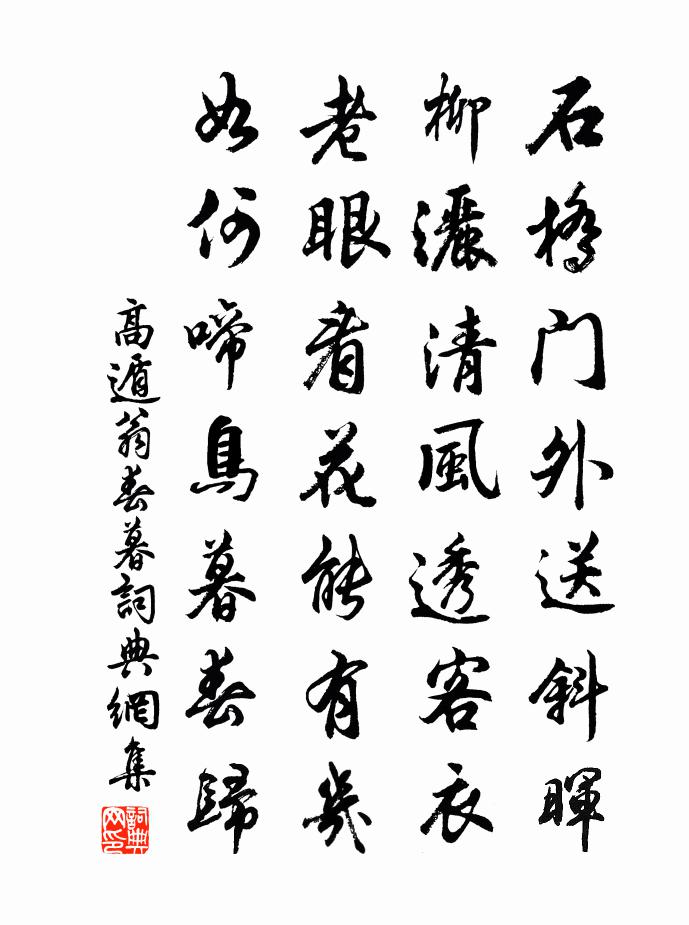 石橋門外送斜暉
柳灑清風透客衣
老眼看花能有幾
如何啼鳥暮春歸
高遁翁春暮詞典網集
詞典网印